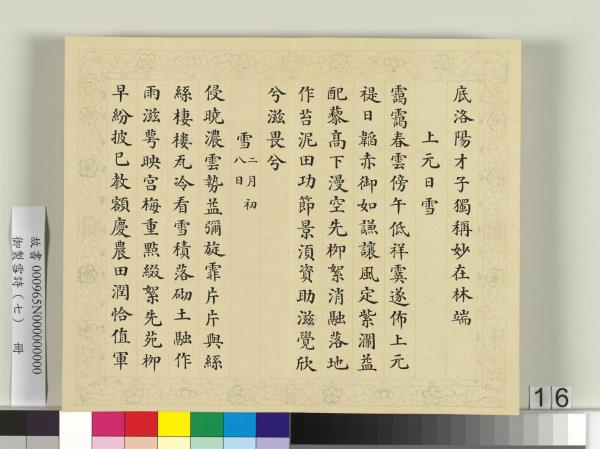 底洛陽才子獨稱妙在林端
上元日雪
靄靄春雲傍午低祥霙遂佈上元
禔日韜赤御如謙讓風定紫瀾益
配藜高下漫空先柳絮消融落地
作苔泥田功節景湏資助滋覺欣
兮滋畏兮
雪二月初八日
侵曉濃雲勢益彌旋霏片片與絲
絲樓樓瓦冷看雪積落砌土融作
雨滋萼映宮梅重點綴絮先苑柳
早紛披已教額慶農田潤恰值軍
故書000965N000000000
御製雪詩（七） 冊
16